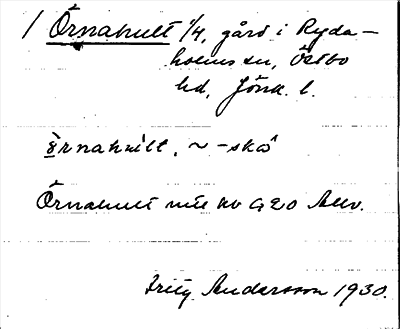 1 Örnahult 1/4, gård i Ryda-
holms sn, Östbo
hd, Jönk. l.
örnahult, ~ -skɷ̂
Örnahult mtl nv G20 Allv.
Fritz Andersson 1930.